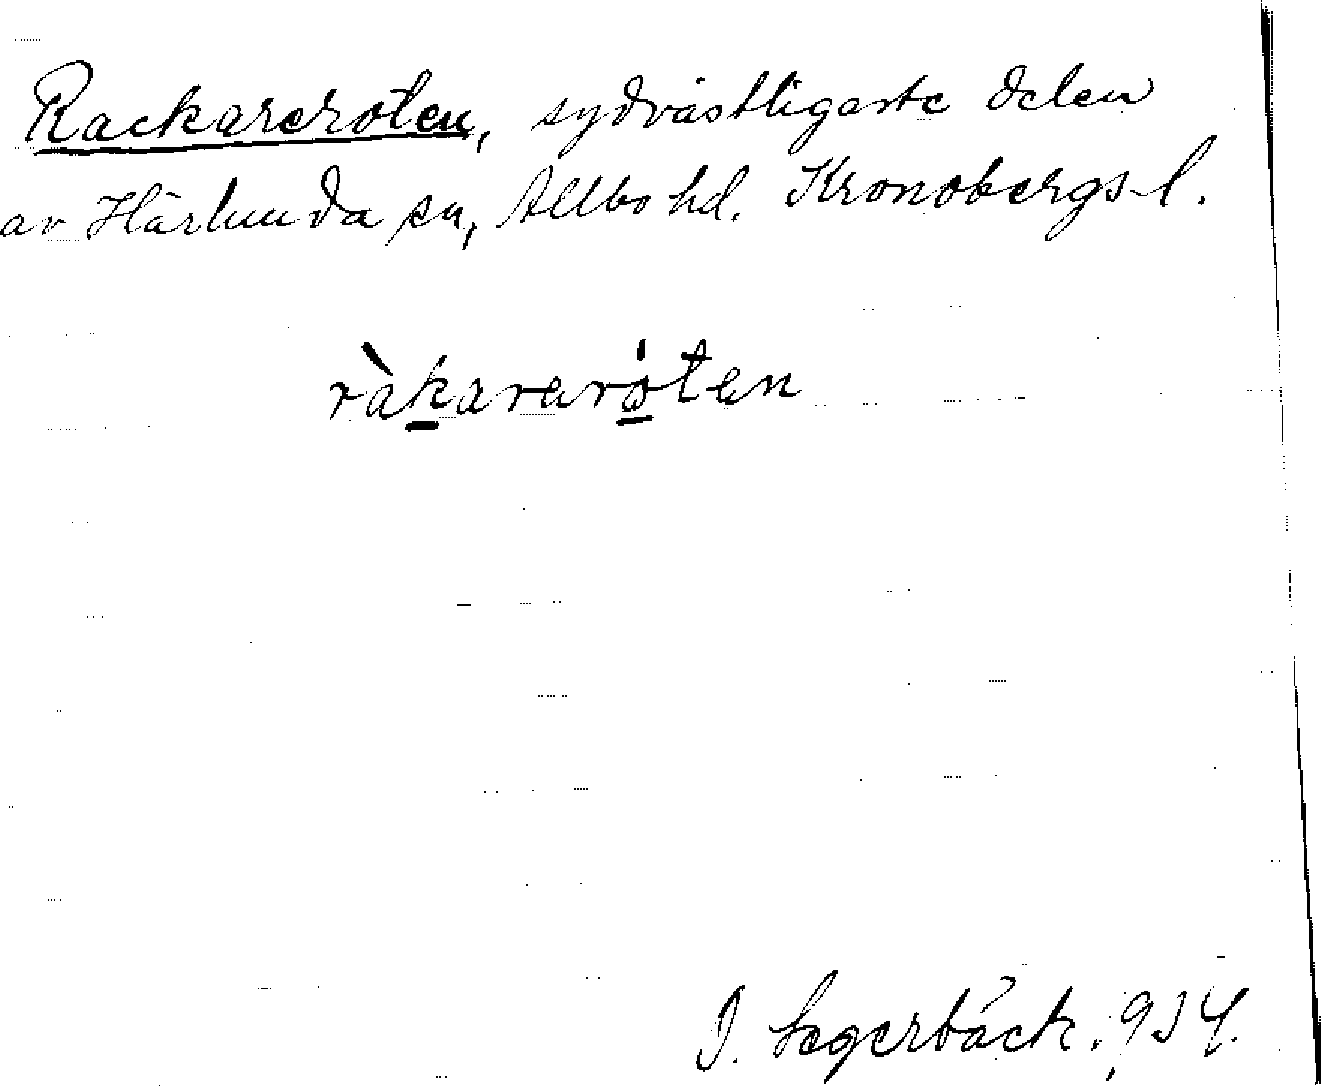 Rackareroten, sydvästligaste delen
av Härlunda sn, Allbo hd. Kronobergs l.
ràkareroten
J. Segerbäck, 1934.